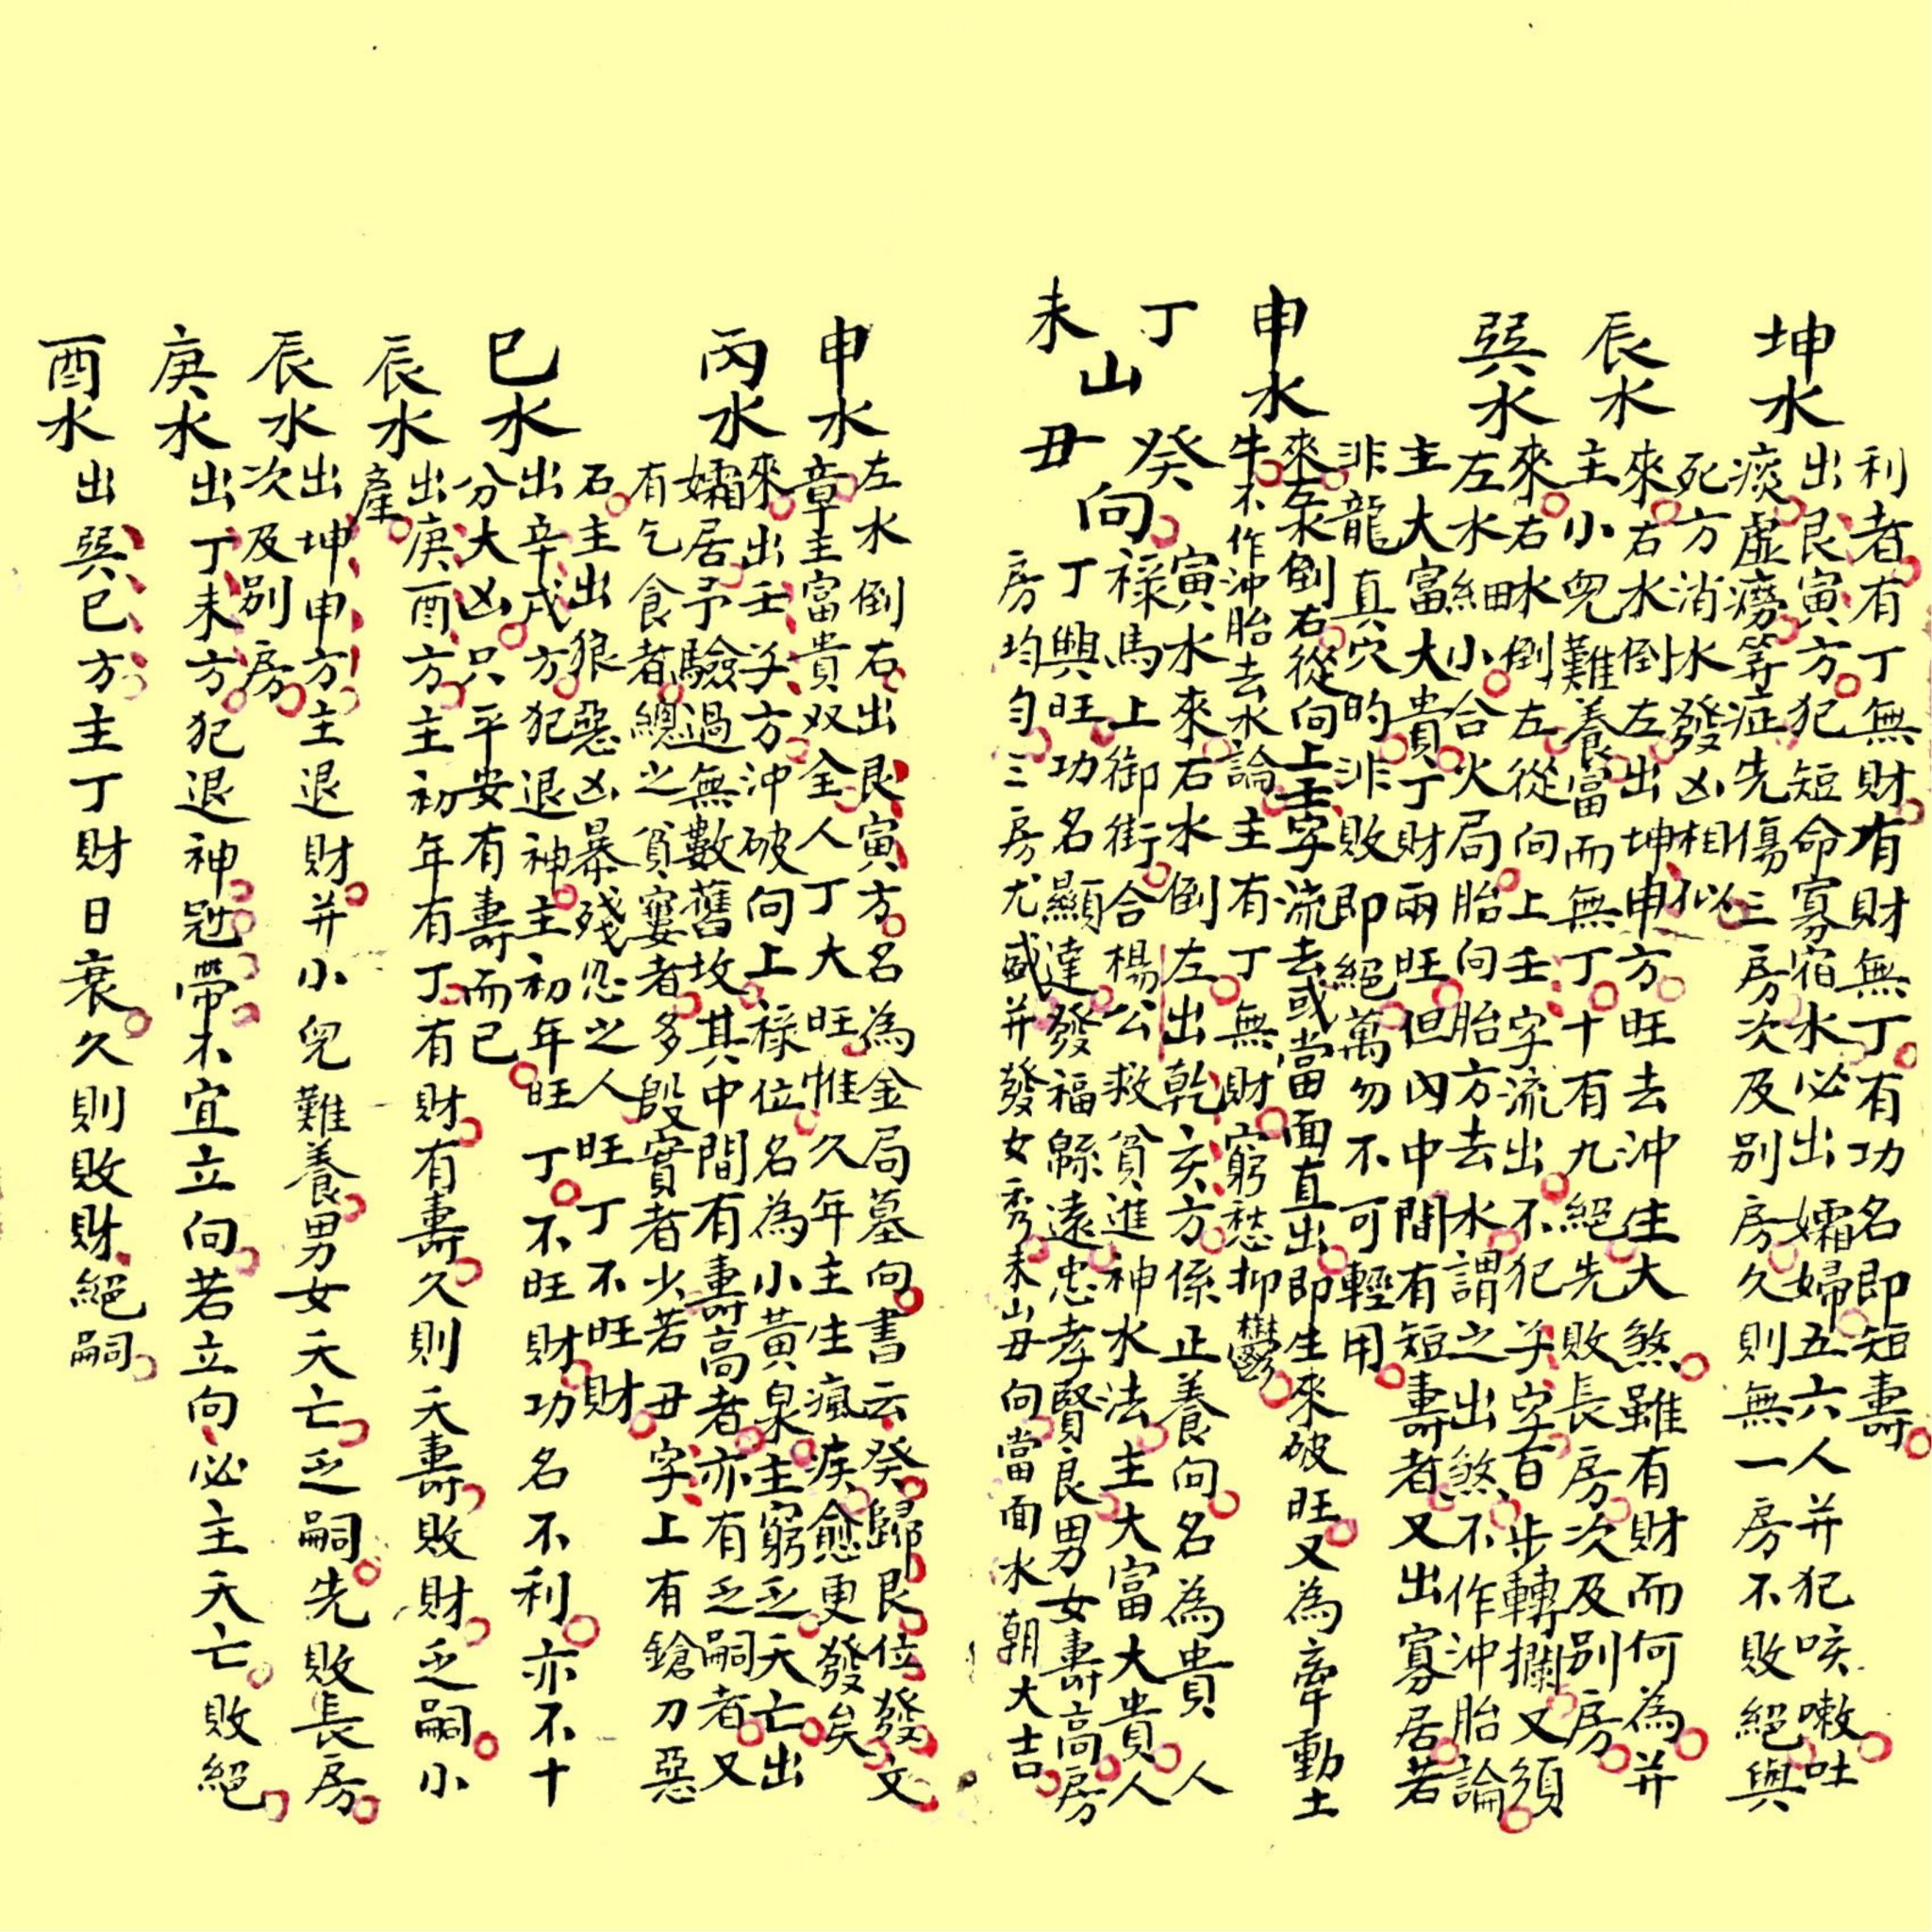 利者有丁無財有財無丁有功名即短壽
坤水
出艮寅方犯短命寡宿水必出孀婦五六人并犯咳嗽吐
痰虛癆等症先傷三房次及别房久則無一房不敗絕與
死方消水發凶相似
辰水
來右水倒左出坤申方旺去沖生大煞雖有財而何為并
主小兒難養富而無丁十有九絕先敗長房次及别房
巽水
來右水倒左從向上壬字流出不犯子字百步轉攔又須
左水細小合火局胎向胎方去水謂之出煞不作沖胎論
主大富大貴丁財兩旺但內中間有短壽者又出寡居若
非龍真穴的非敗即絕萬勿不可輕用
申水
來左水倒右從向上壬字流去或當面直出即生來破旺又為牽動土
牛不作沖胎去水論主有丁無財窮愁抑鬱
丁未山癸丑向
寅水來右水倒左出乾亥方係正養向名為貴人
祿馬上御街合楊公救貧進神水法主大富大貴人
丁興旺功名顯達發福綿遠忠孝賢良男女壽高房
房均勻三房尤盛并發女秀未山丑向當面水朝大吉
申水
左水倒右出艮寅方名為金局墓向書云癸歸艮位發文
章主富貴双全人丁大旺惟久年主生瘋疾愈更發矣
丙水
來出壬子方沖破向上祿位名為小黃泉主窮乏夭亡出
孀居予驗過無數舊坟其中間有壽高者亦有乏嗣者又
有乞食者總之貧窶者多殷實者少若丑字上有鎗刀惡
石主出狼惡凶暴殘忍之人旺丁不旺財
巳水
出辛戌方犯退神主初年旺丁不旺財功名不利亦不十
分大凶只平安有壽而已
辰水
出庚酉方主初年有丁有財有壽久則夭壽敗財乏嗣小
產
辰水
出坤申方主退財并小兒難養男女夭亡乏嗣先敗長房
次及别房
庚水
出丁未方犯退神冠帶不宜立向若立向必主夭亡敗絕
酉水
出巽巳方主丁財日衰久則敗財絕嗣